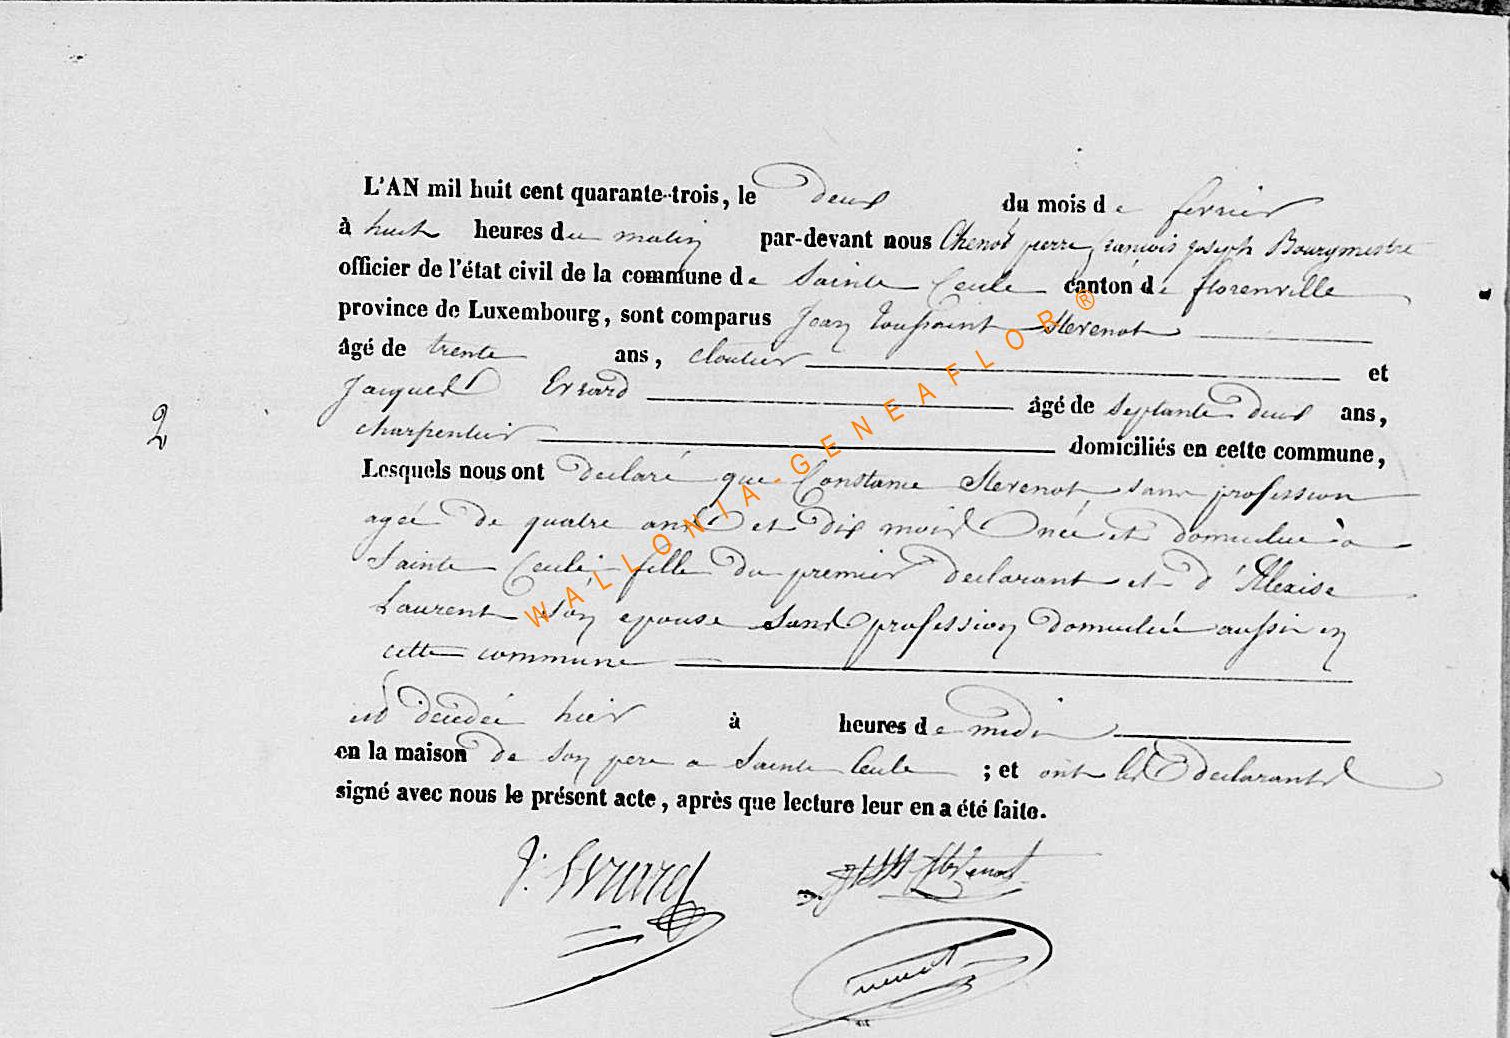 L'AN mil huit cent quarante-trois, le deux du mois de fevrier
à huit heures du matin par-devant nous Chenot pierre françois joseph Bourgmestre
officier de l'état civil de la commune de Sainte Cecile canton de florenville
province de Luxembourg, sont comparus Jean Toussaint Stevenot
âgé de trente ans, cloutier et
Jacques Evrard âgé de septante deux ans,
charpentier domiciliés en cette commune,
2
Lesquels nous ont declaré que Constance Stevenot sans profession
agée de quatre ans et dix mois née et domiciliée à
Sainte Cecile fille du premier declarant et d'Alexise
Laurent son epouse sans profession domiciliée aussi en
cette commune
est décédée hier à heures de midi
en la maison de son pere a Sainte Cecile ; et ont les declarants
signé avec nous le présent acte, après que lecture leur en a été faite.
J. Evrard Stevenot
Chenot
WALLONIA-GENEAFLOB®